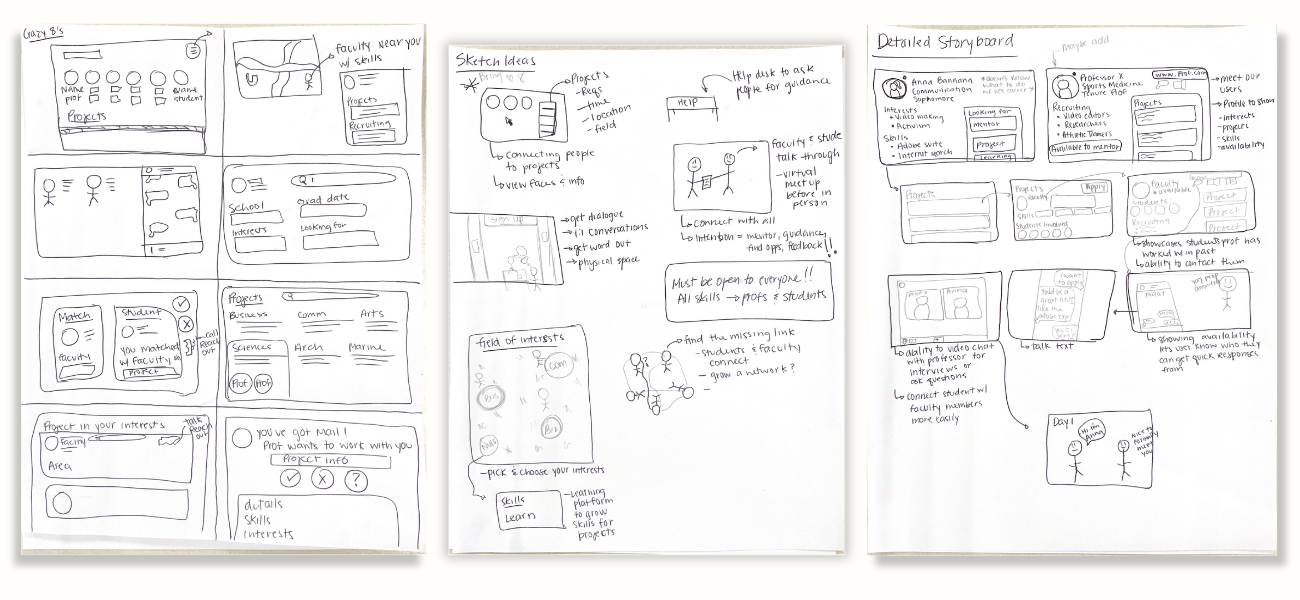 Crazy 8's
Name
prof
Name
student
Projects
faculty near you
w/ skills
Projects
Recruiting
School
Interests
Grad date
Looking for
Match
faculty
Student
you matched
w/ faculty on
Project
call
Reach
out
Projects
Business
Comm
Arts
Sciences
Arch
Marine
Prof
Prof
Project in your interests
Faculty
Area
talk
Reach
out
you've got Mail!
Prof wants to work with you
Project info
?
details
skills
interests
Sketch Ideas
Bring to 8
Projects
-Reqs
-time
-Location
-field
Connecting people
to projects
view faces & info
Help desk to ask
people for guidance
HELP
Faculty & stude
talk-through
-virtual
meet up
before in
person
Connect with all
Intention = mentor, guidance,
find opps, feedback!!
sign up
get dialogue
1:1 conversations
get word out
physical space
Must be open to everyone!!
All skills → profs & students
field of interests
Com
Bus
Bio
-pick & choose your interests
Skills
Learn
-Learning
platform
to grow
skills for
projects
find the missing link
-students & faculty
connect
- grow a network?
-
Detailed Storyboard
Maybe add
Anna Bannana
Communication
Sophomore
*doesn't know
what to do
Interests
• Video making
• Activism
Skills
• Adobe suite
• Internet search
Looking for
mentor
Project
Learning
Professor X
Sports Medicine
Tenure Prof
www.Prof.com
Recruiting
• Video editors
• Researchers
• Athletic Trainers
Available to mentor
Projects
meet our
users
Profile to show
-interests
-projects
-skills
-availability
Projects
Projects
Faculty
Skills
Students Involved
Apply
Faculty
available
Students
Recruiting
Project
Project
Project
showcases students prof has
worked w/ in past
ability to contact them
Anna
ability to video chat
with professor for
interviews or
ask questions
connect student w/
faculty members
more easily
I want
to apply
You'd be a
great fit! I
like the
adobe exp
talk text
showing availability
lets user know who they
can get quick responses
from
Day 1
Hi I'm
Anna
nice to
formally
meet
you